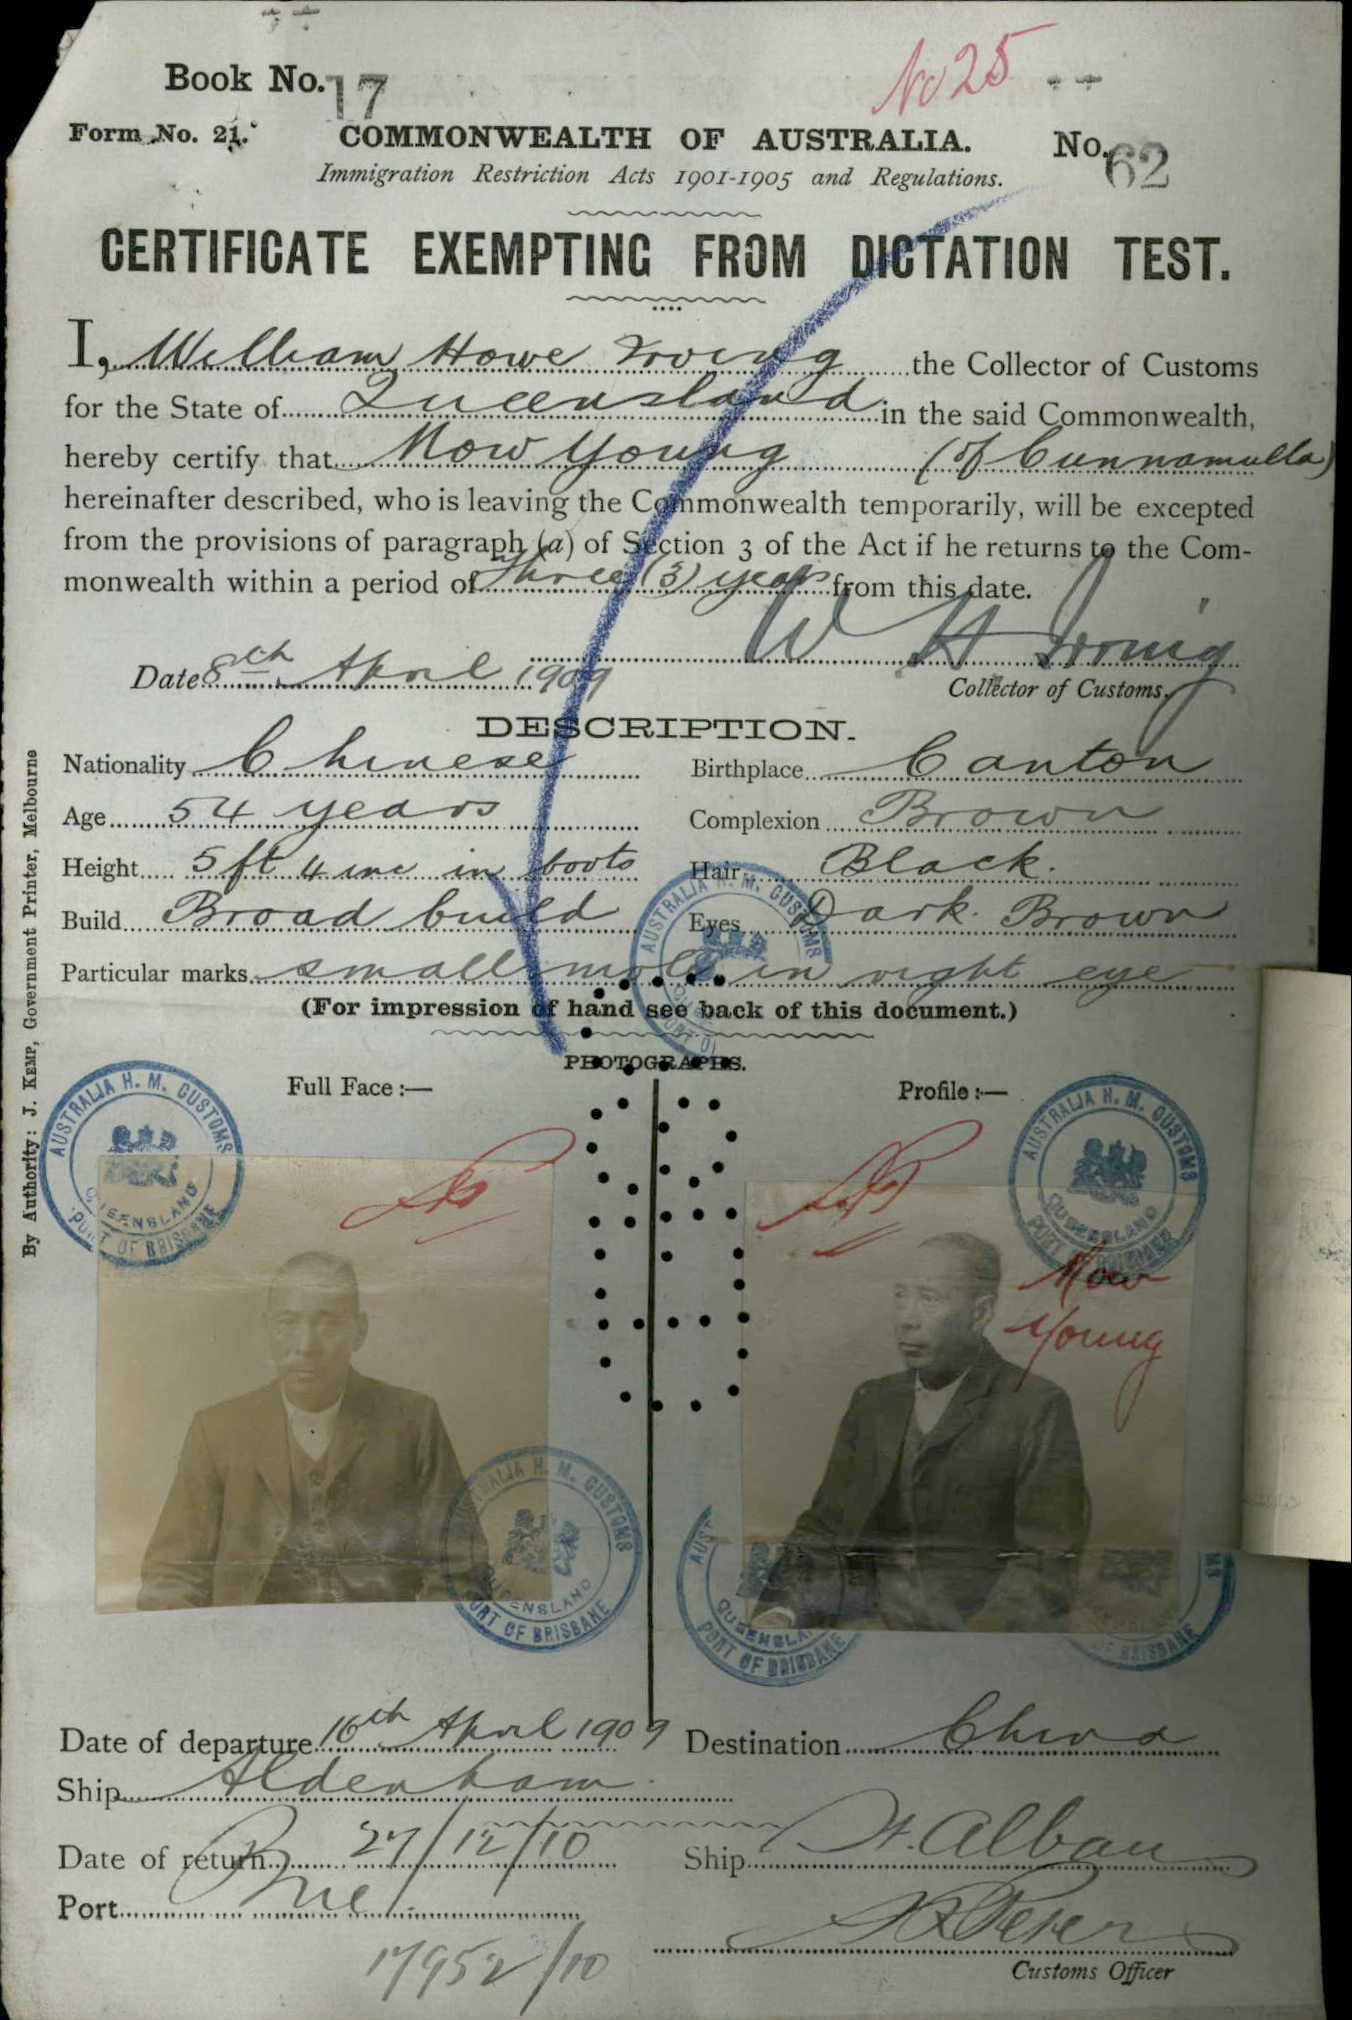 Book No. 17
No 25
Form No. 21.
COMMONWEALTH OF AUSTRALIA.
No. 62
Immigration Restriction Acts 1901-1905 and Regulations.
CERTIFICATE EXEMPTING FROM DICTATION TEST.
I, William Howe Irving the Collector of Customs
for the State of Queensland in the said Commonwealth,
hereby certify that Mow Young (of Cunnamulla)
hereinafter described, who is leaving the Commonwealth temporarily, will be excepted
from the provisions of paragraph (a) of Section 3 of the Act if he returns to the Com-
monwealth within a period of Three (3) years from this date.
W H Irving
Date 8th April 1909
Collector of Customs.
DESCRIPTION.
Nationality Chinese Birthplace Canton
Age 54 years Complexion Brown
Height 5 ft 4 ins in boots Hair Black.
Build Broad build Eyes Dark Brown
Particular marks small mole in right eye
(For impression of hand see back of this document.)
PHOTOGRAPHS.
Full Face :— Profile :—
By Authority: J. KEMP, Government Printer, Melbourne
AUSTRALIA H. M. CUSTOMS
AUSTRALIA H. M. CUSTOMS QUEENSLAND PORT OF BRISBANE
AUSTRALIA H. M. CUSTOMS QUEENSLAND PORT OF BRISBANE
Mow
Young
AUSTRALIA H. M. CUSTOMS QUEENSLAND PORT OF BRISBANE
QUEENSLAND PORT OF BRISBANE
OF BRISBANE
Date of departure 16th April 1909 Destination China
Ship Aldenham
Date of return 27/12/10 Ship St. Albans
Port Bne
Customs Officer
17952/10